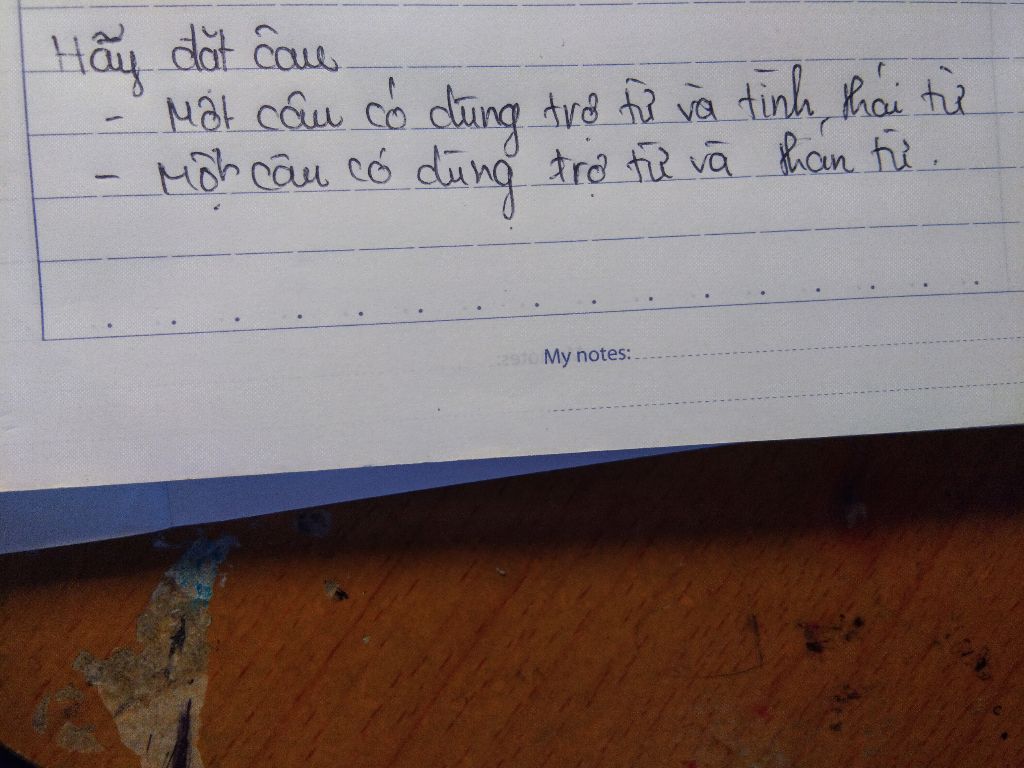 Hãy đặt câu
- Một câu có dùng trợ từ và tình thái từ
- Một câu có dùng trợ từ và thán từ.
My notes: